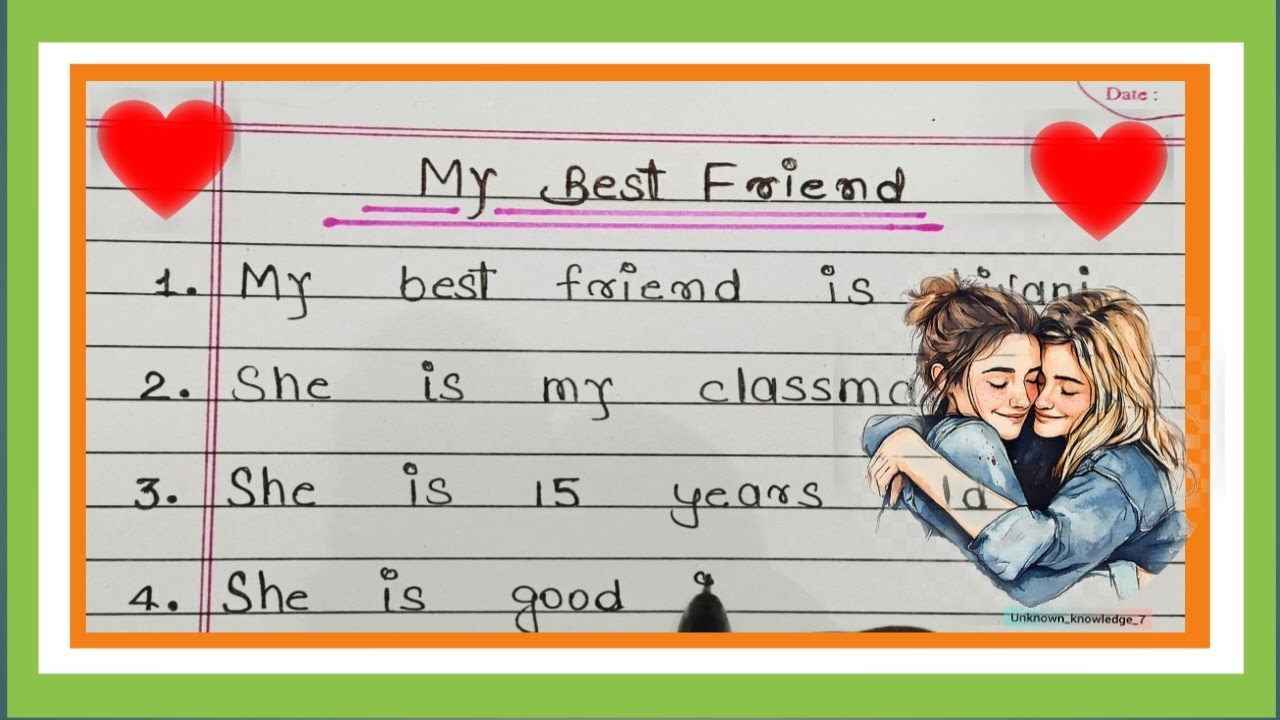 Date :
My Best Friend
1. My best friend is
2. She is my
3. She is 15 years
4. She is good
Unknown_knowledge_7